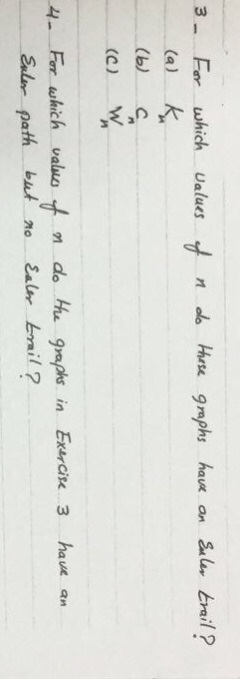 3- For which values of n do these graphs have an Euler trail?
(a) Kn
(b) Cn
(c) Wn
4- For which values of n do the graphs in Exercise 3 have an
Euler path but no Euler trail?